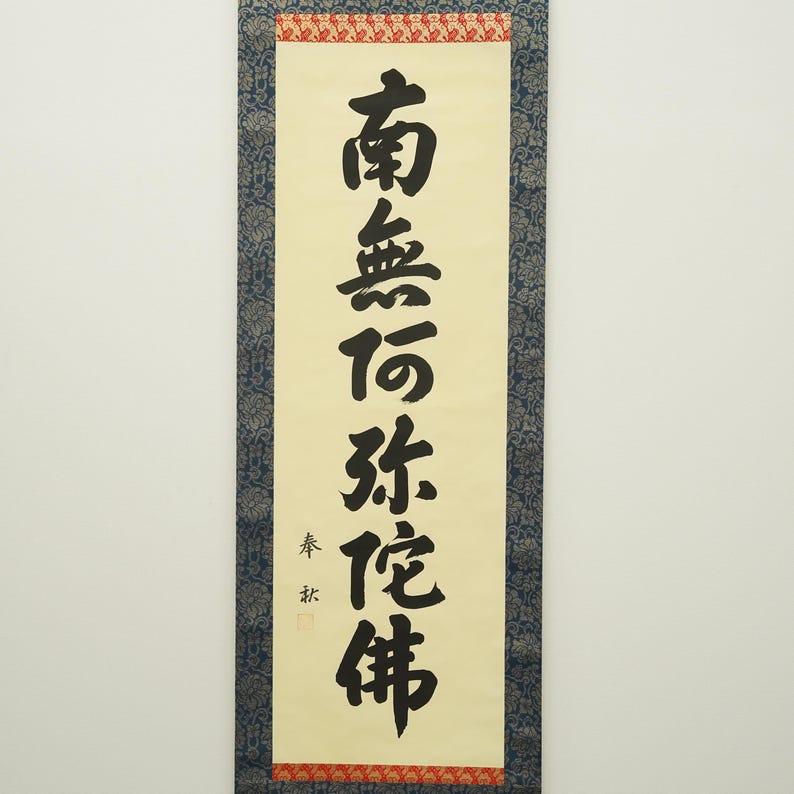 南無阿弥陀佛
奉秋